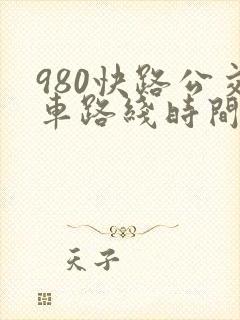 980快路公交
車路綫時間
天子